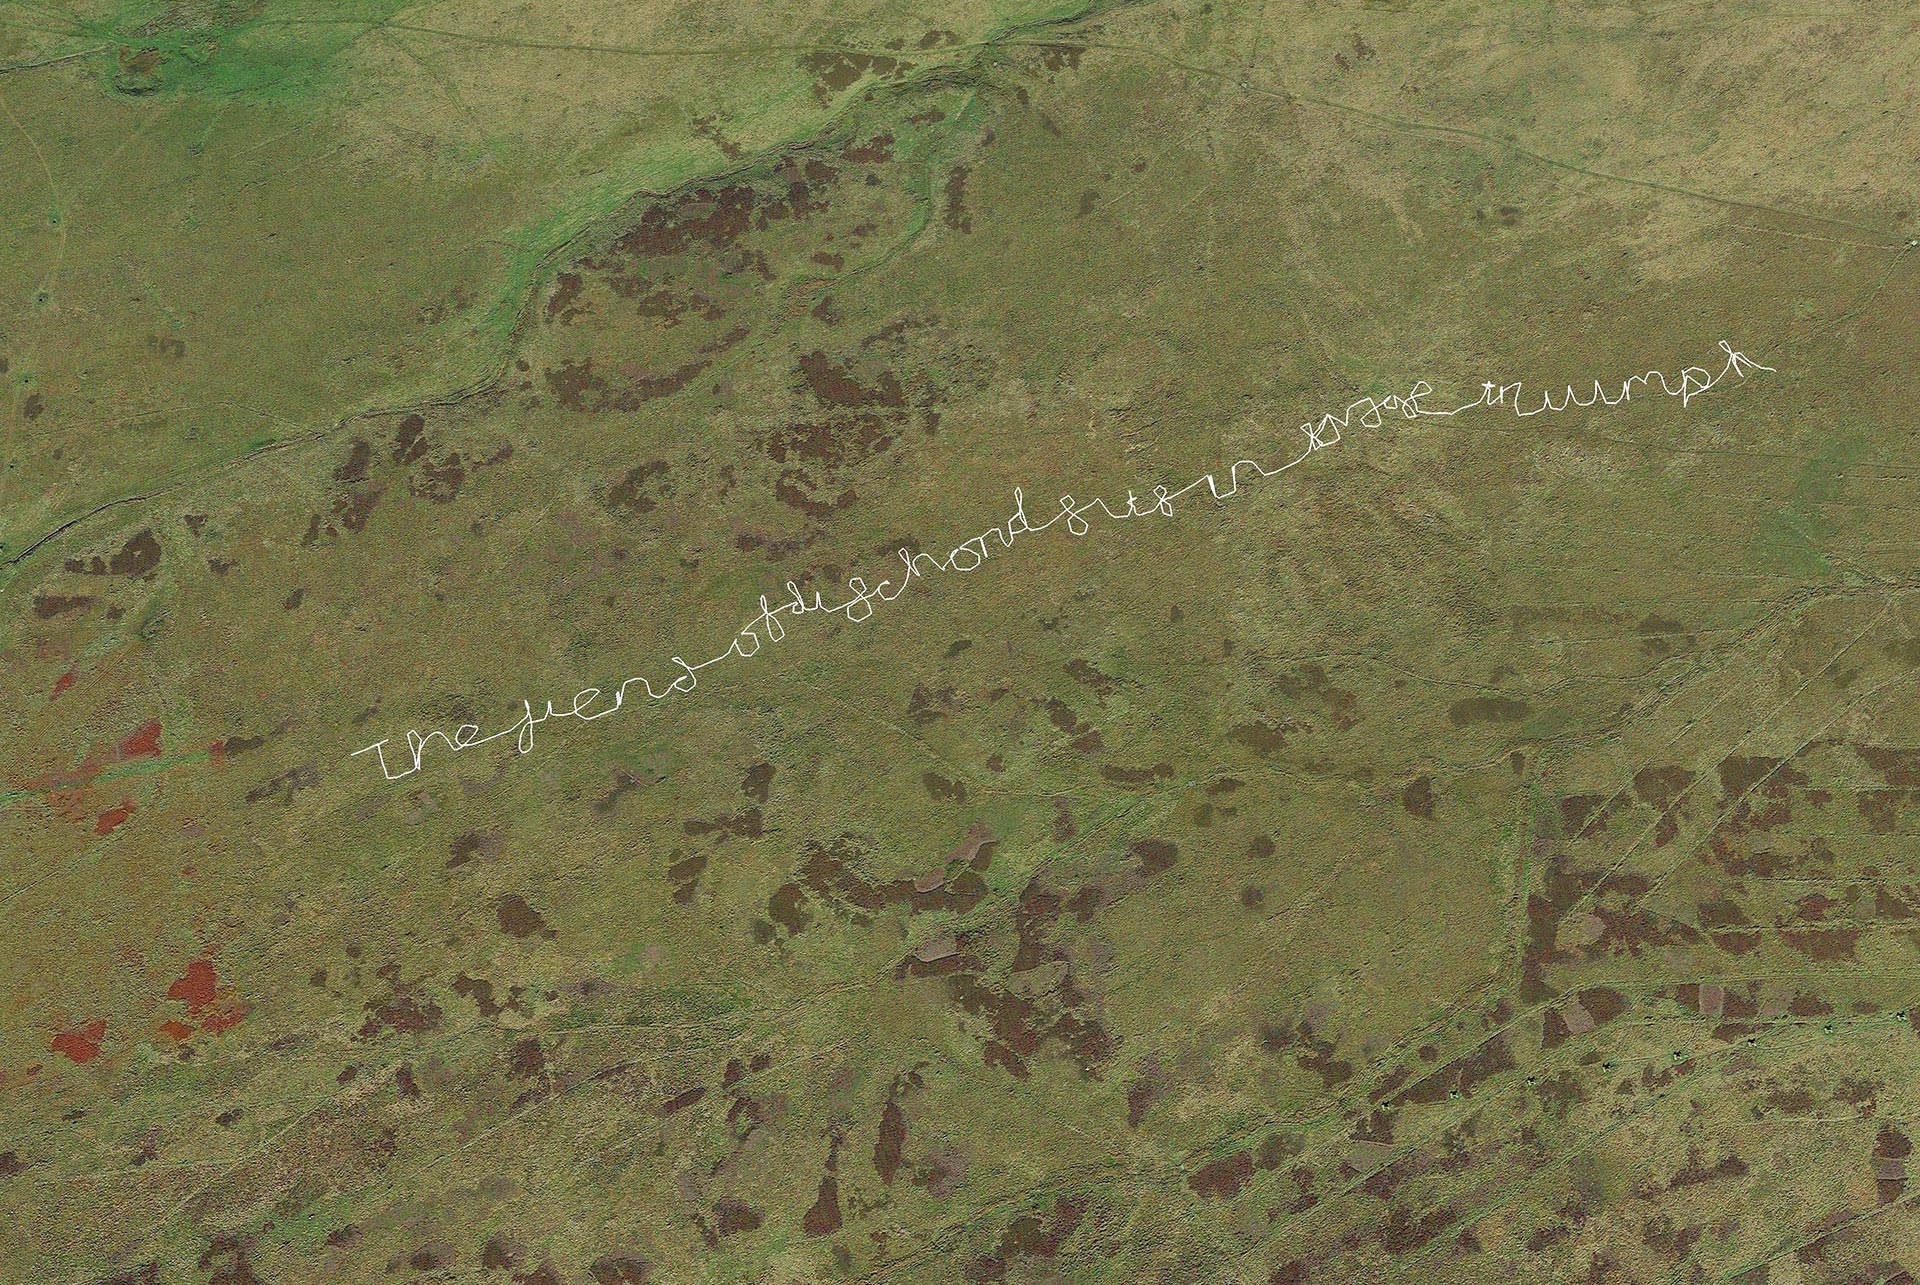 The fiend of dischord sits in savage triumph